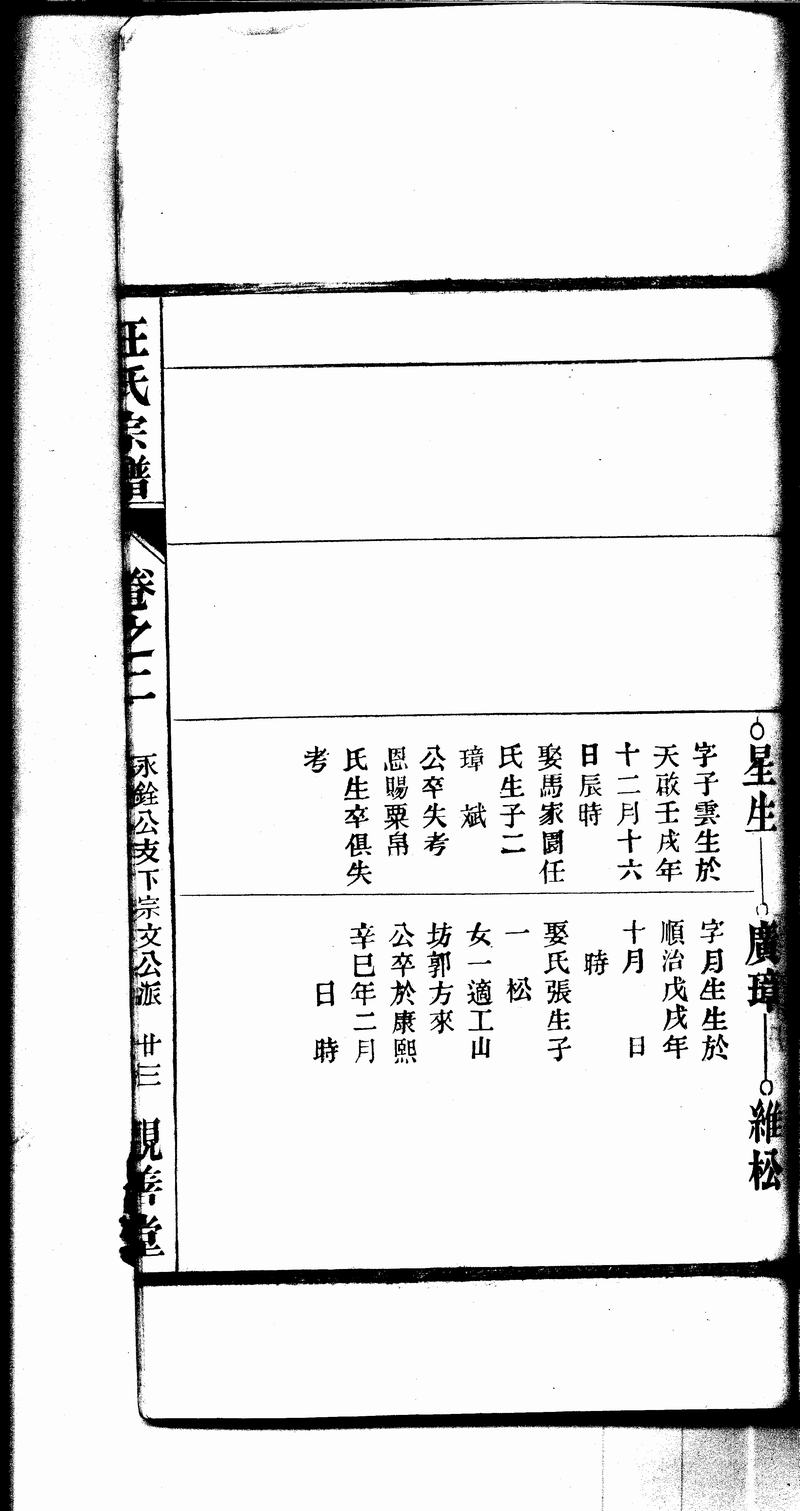 星生
字子雲生於
天啟壬戌年
十二月十六
日辰時
娶馬家園任
氏生子二
璋　斌
公卒失考
恩賜粟帛
氏生卒俱失
考
廣璋
字月生生於
順治戊戌年
十月　　日
時
娶氏張生子
一　松
女一適工山
坊郭方來
公卒於康熙
辛巳年二月
日　時
維松
汪氏宗譜
卷之二
永銓公支下宗文公派　廿三
親善堂